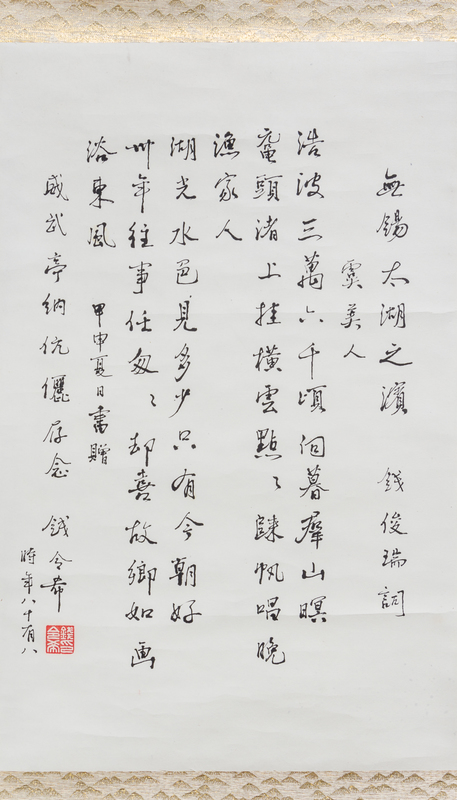 無錫太湖之濱 錢俊瑞詞
虞美人
浩波三萬六千頃向暮群山暝
黿頭渚上挂橫雲點〻踈帆唱晚
漁家人
湖光水色見多少只有今朝好
卅年往事任匆〻却喜故鄉如画
浴東風
甲申夏日書贈
威武亭納伉儷存念 錢令希
時年八十有八